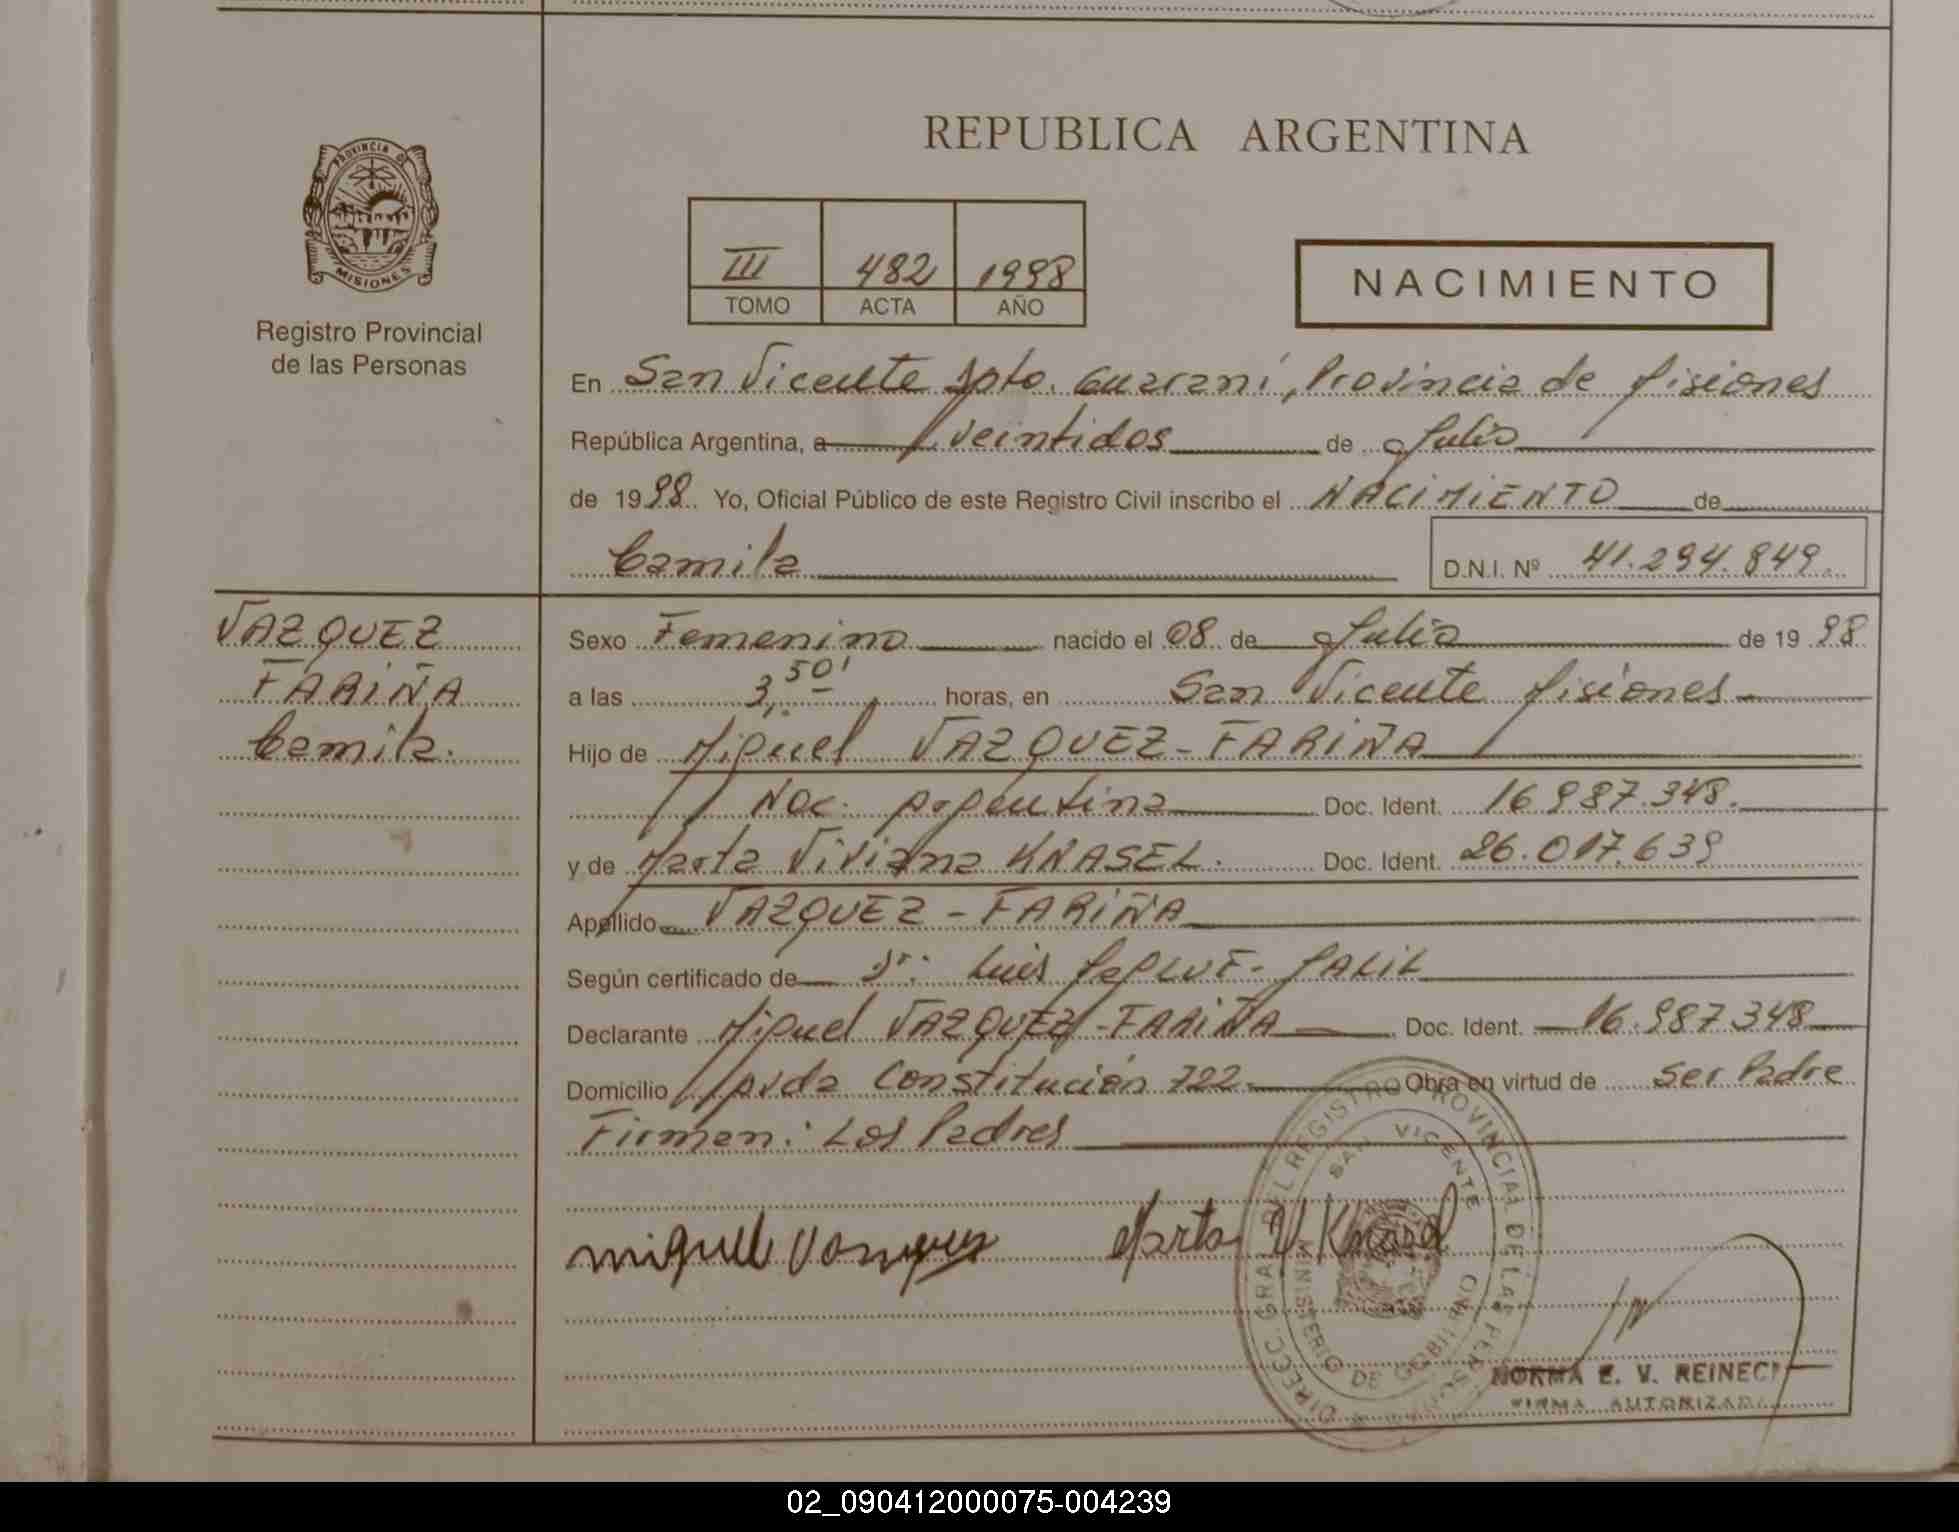 REPUBLICA ARGENTINA
PROVINCIA D
MISIONES
Registro Provincial
de las Personas
III 482 1998
TOMO ACTA AÑO
NACIMIENTO
En San Vicente Dpto. Guaraní, Provincia de Misiones
República Argentina, a veintidos de Julio
de 1998. Yo, Oficial Público de este Registro Civil inscribo el NACIMIENTO de
Camila D.N.I. Nº 41.294.849.
VAZQUEZ
FARIÑA
Camila.
Sexo Femenino nacido el 08 de Julio de 1998
a las 3,50' horas, en San Vicente Misiones
Hijo de Miguel VAZQUEZ-FARIÑA
Nac. Argentina Doc. Ident. 16.987.348.
y de Marta Viviana KNASEL. Doc. Ident. 26.017.639
Apellido VAZQUEZ-FARIÑA
Según certificado de Dr. Luis
Declarante Miguel VAZQUEZ-FARIÑA Doc. Ident. 16.987.348
Domicilio Avda Constitución 722 Obra en virtud de Ser Padre
Firman: Los Padres
miguel Vazquez Marta V. Knasel
DIRECC. GRAL. DEL REGISTRO PROVINCIAL DE LAS PERSONAS
SAN VICENTE
MINISTERIO DE GOBIERNO
NORMA E. V. REINECK
FIRMA AUTORIZADA
02_090412000075-004239